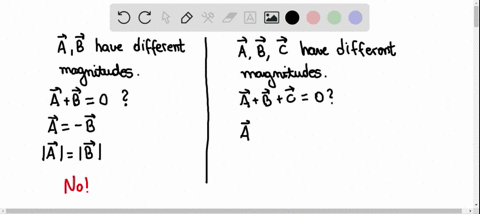 A⃗, B⃗ have different
magnitudes.
A⃗ + B⃗ = 0 ?
A⃗ = -B⃗
|A⃗| = |B⃗|
No!
A⃗, B⃗, C⃗ have different
magnitudes.
A⃗ + B⃗ + C⃗ = 0?
A⃗